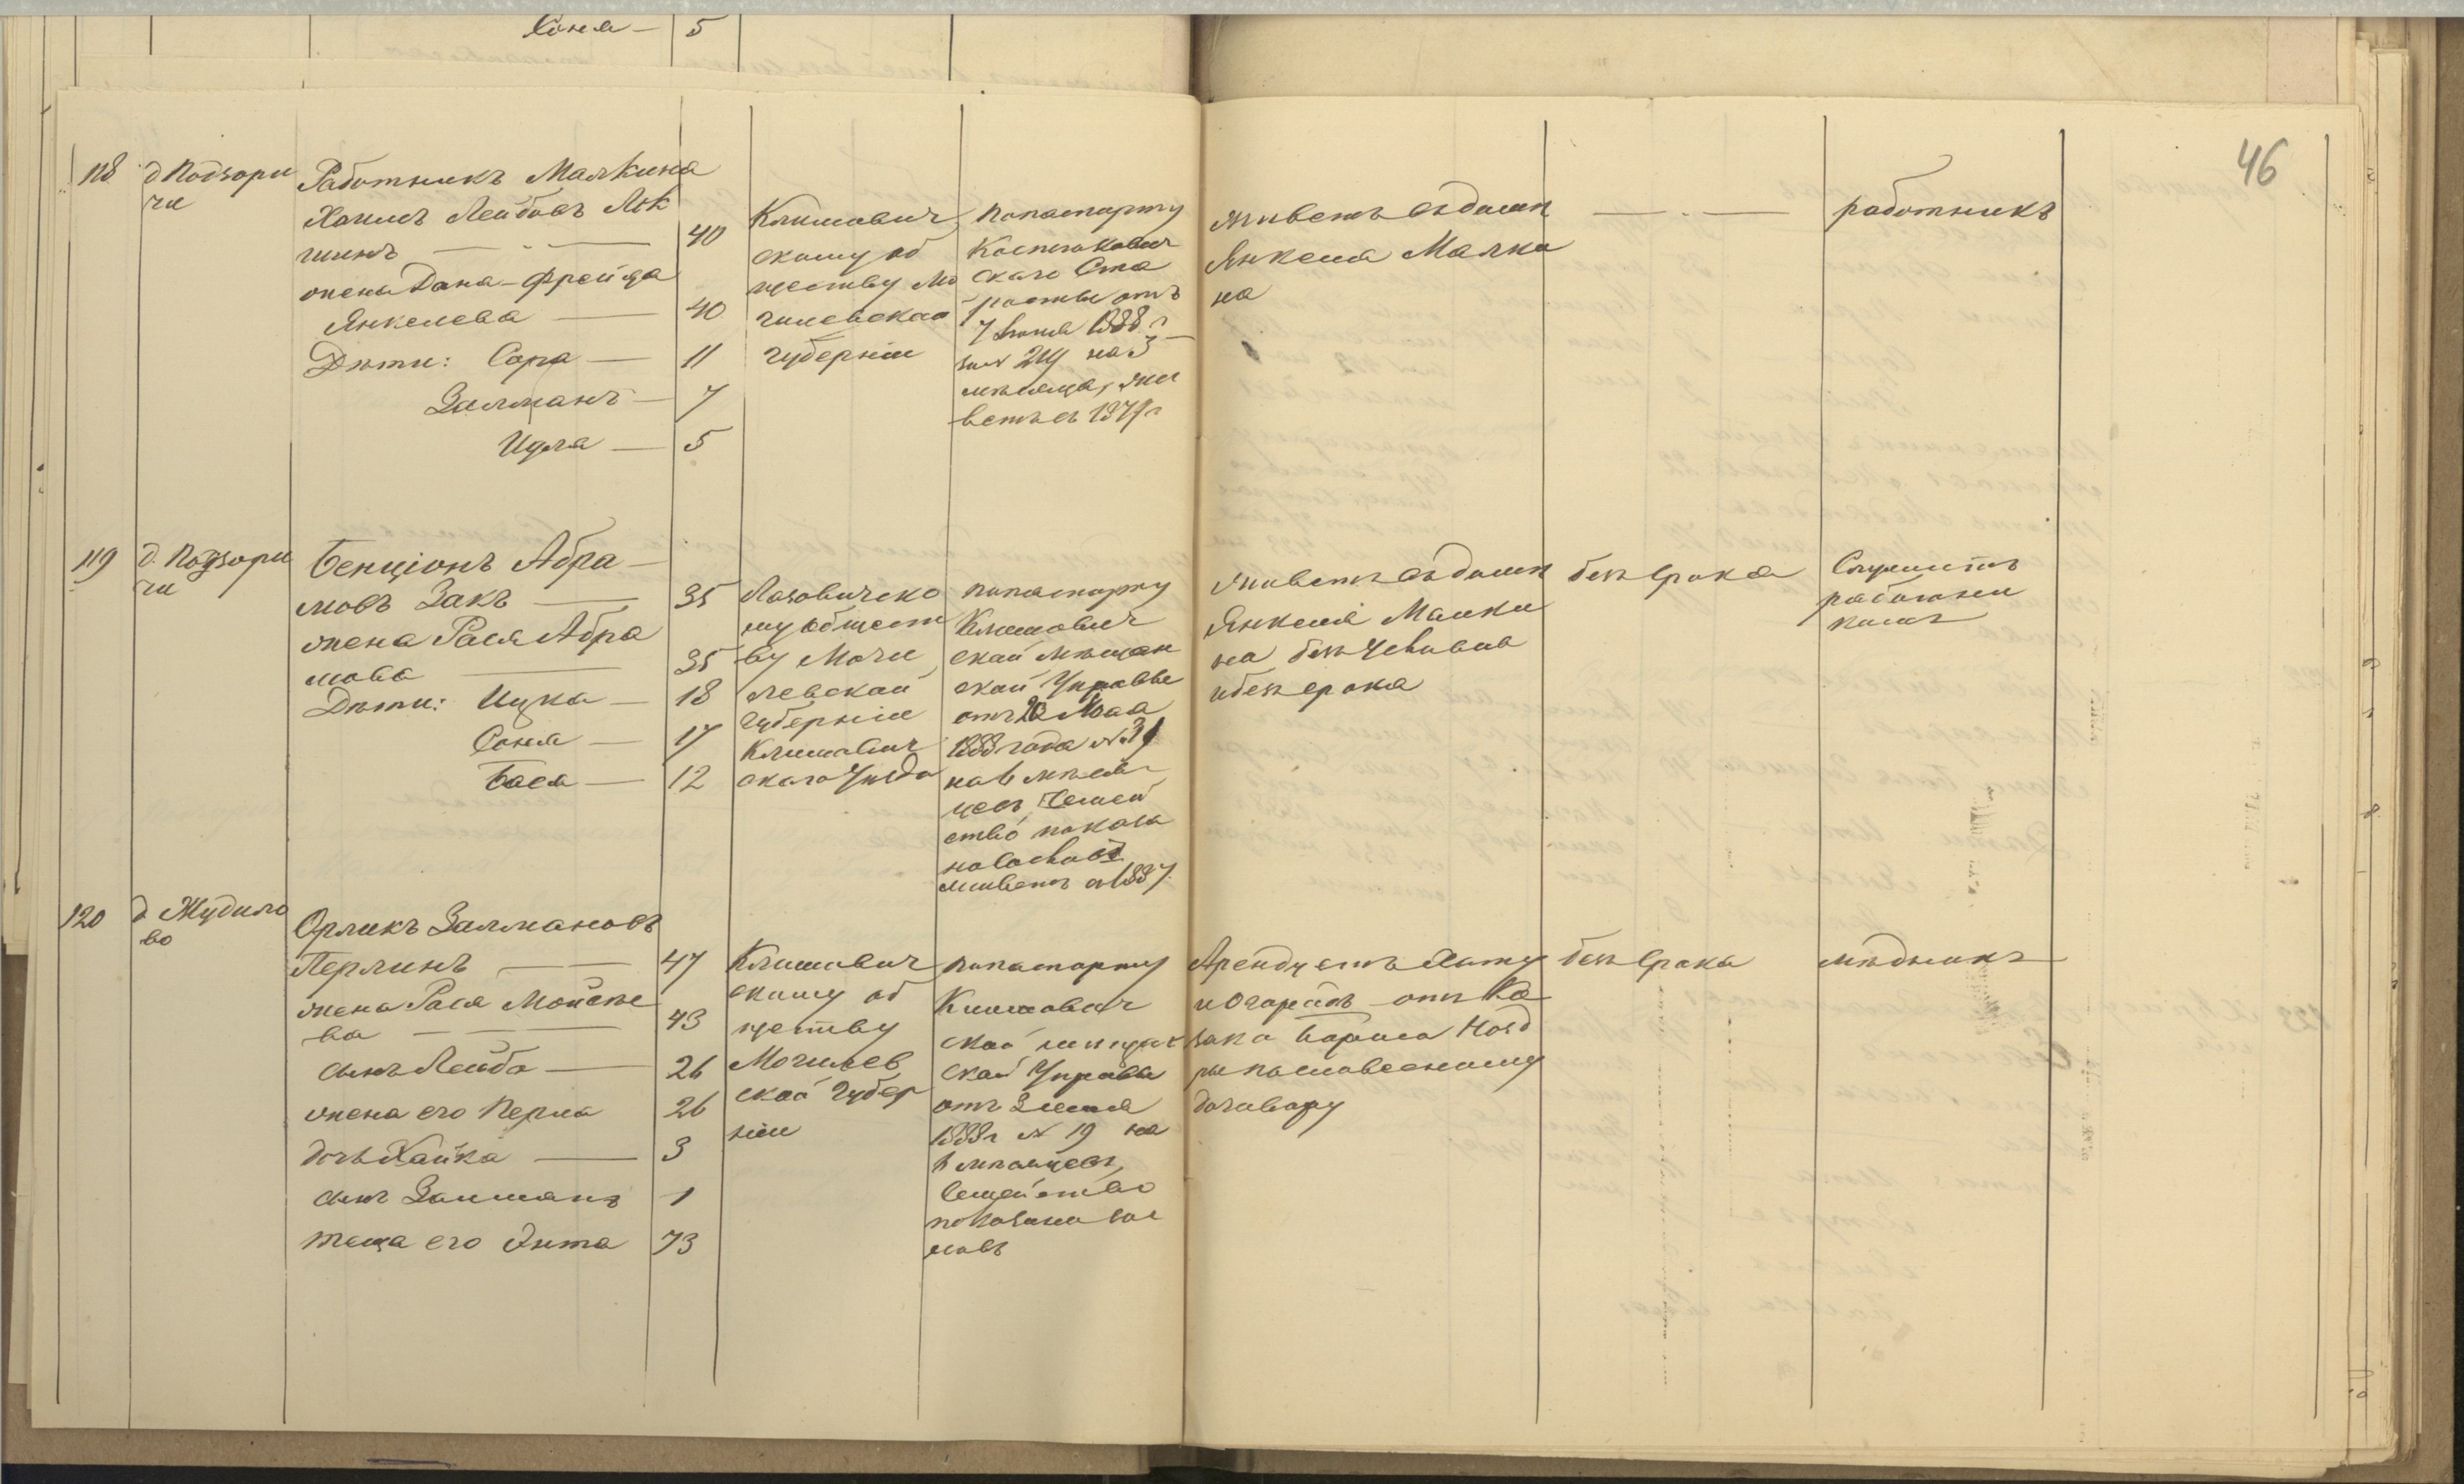 Хоня — 5
46
118 д Подзори
чи
Работникъ Малкина
Хаимъ Лейбовъ
— 40
жена Дана-Фрейда
Янкелева — 40
Дѣти: Сора — 11
Залманъ — 7
Идля — 5
Климович
скому об
ществу Мо
гилевской
губерніи
по паспорту
скаго Ста
росты отъ
7 1888 г
за № на 3
мѣсяца, жи
ветъ съ г
живетъ въ домѣ
Янкеля Малки
на
— . —
работникъ
119 д. Подзори
чи
Бенціонъ Абра
мовъ Закъ — 35
жена Рася Абра
мова — 35
Дѣти: Ицка — 18
Соня — 17
Бася — 12
му общест
ву Моги
левской
губерніи
Климович
скаго уѣзда
по паспорту
Климович
ской мѣщан
ской Управы
отъ Мая
1888 года №
на 6 мѣся
цевъ, Семей
ство показа
но
живетъ съ 1887
живетъ въ домѣ
Янкеля Малки
на без условія
и безъ срока
безъ срока
Служитъ
работни
комъ
120 д Жудило
во
Орликъ Залмановъ
Перлинъ — 47
жена Рася Мойсѣе
ва — 43
сынъ Лейба — 26
жена его Перла 26
дочь Хайка — 3
сынъ Залманъ 1
теща его Энта 73
Климович
скому об
ществу
Могилев
ской губер
ніи
по паспорту
Климович
ской мѣщан
ской Управы
отъ 3
1888 г № 19 на
6 мѣсяцевъ,
Семейство
показано
Арендуетъ Хату
и Огородъ отъ Ка
зака
по словесному
договору
безъ срока
мѣдникъ